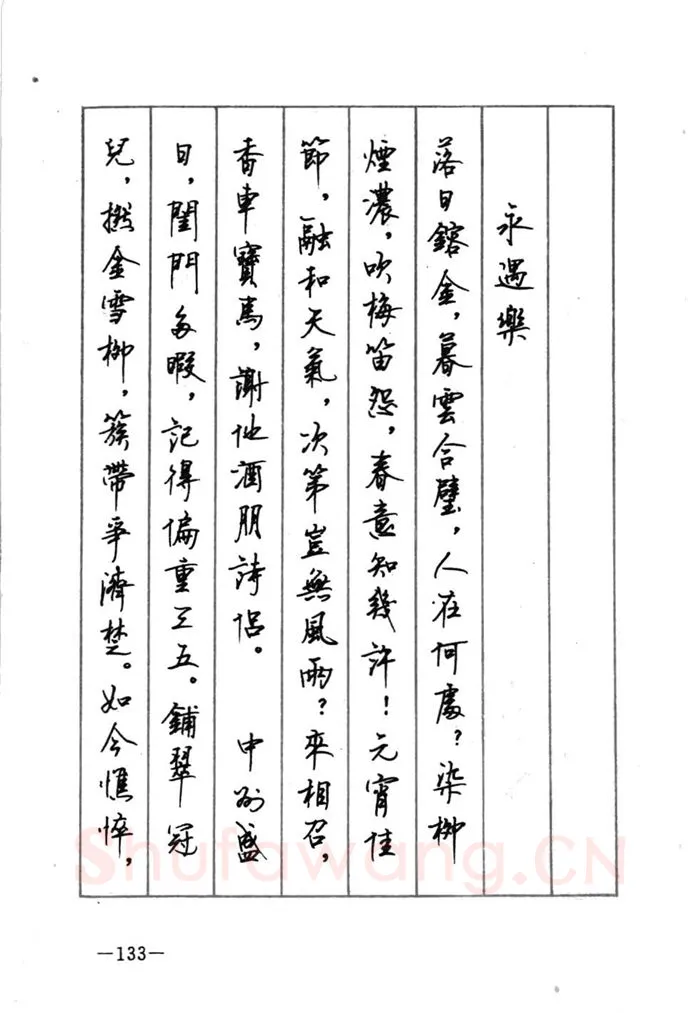 永遇樂
落日鎔金，暮雲合璧，人在何處？染柳
煙濃，吹梅笛怨，春意知幾許！元宵佳
節，融和天氣，次第豈無風雨？來相召，
香車寶馬，謝他酒朋詩侶。　中州盛
日，閨門多暇，記得偏重三五。鋪翠冠
兒，撚金雪柳，簇帶爭濟楚。如今憔悴，
—133—
Shufawang.CN